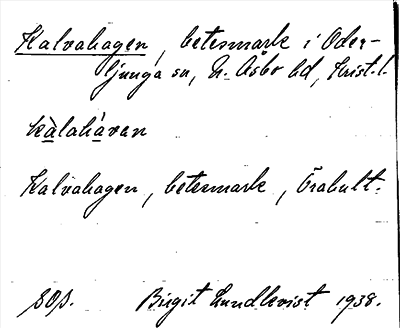 Kalvahagen, betesmark i Oder-
ljunga sn, N. Åsbo hd, Krist. l.
kàlahávan
Kalvahagen, betesmark, Örahult.
sop.
Birgit Lundkvist 1938.